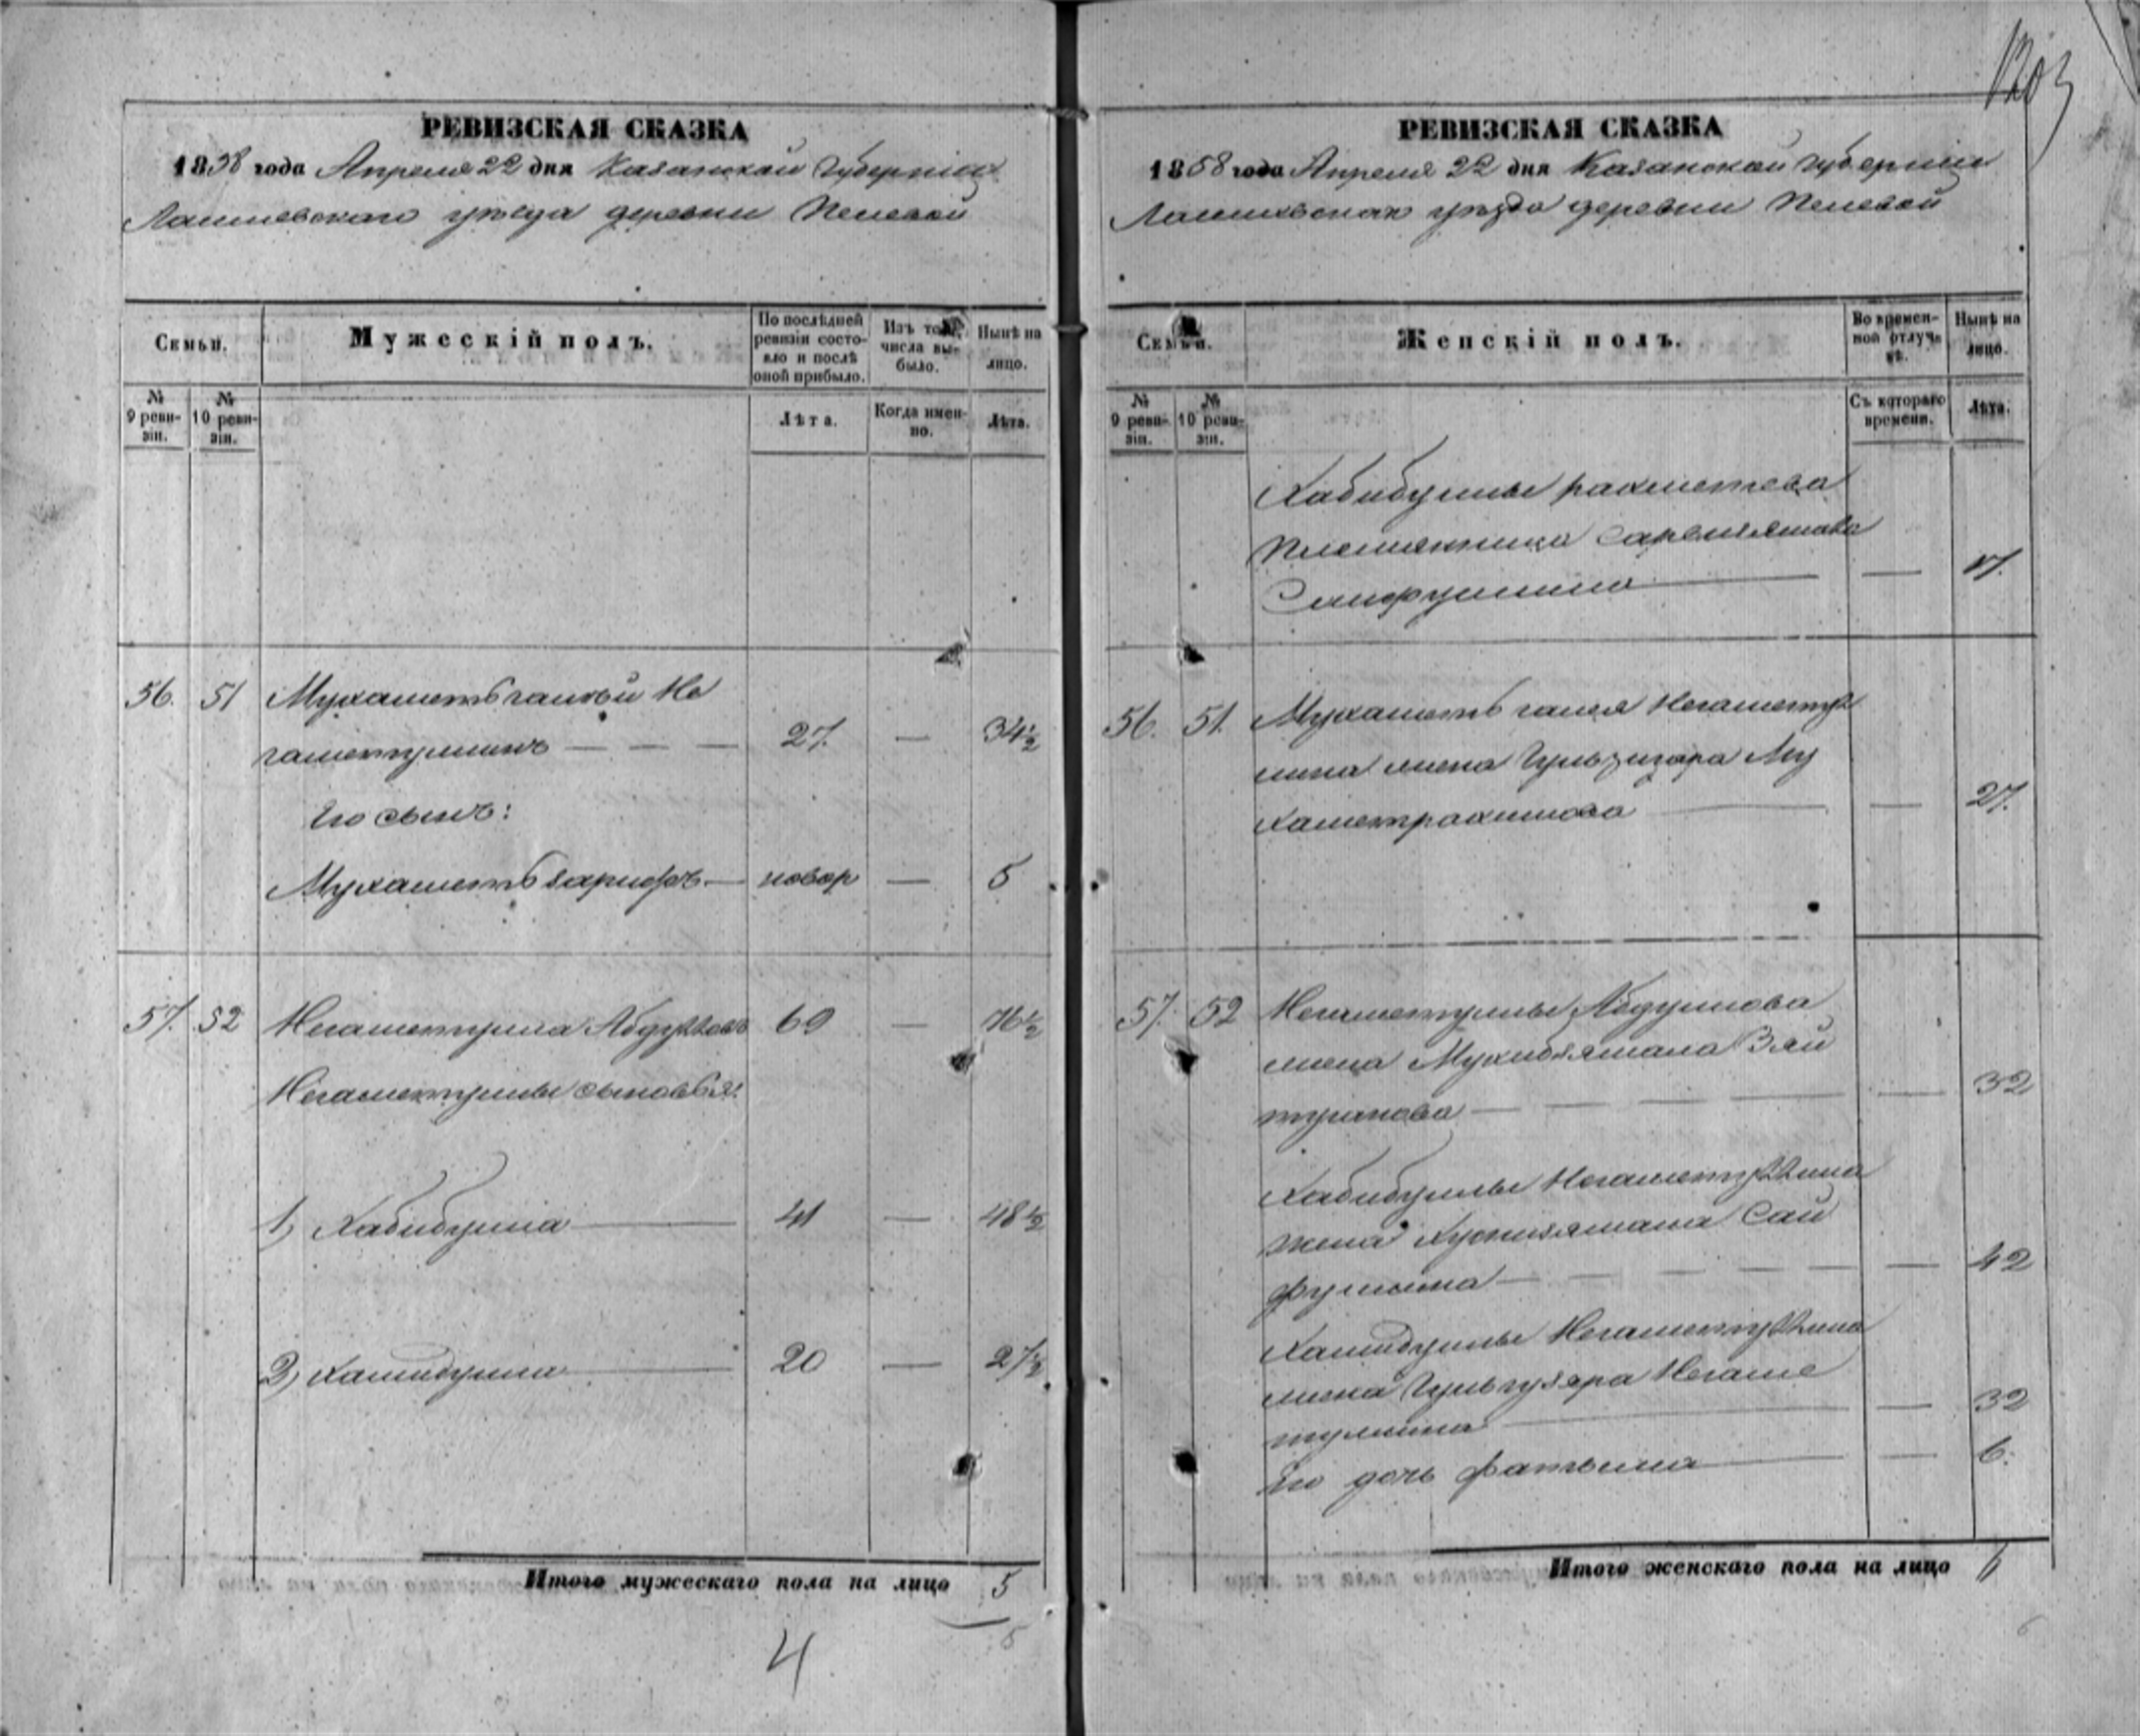 1203
РЕВИЗСКАЯ СКАЗКА
1858 года Апреля 22 дня Казанской Губернии
Лаишевскаго уѣзда деревни
Семьи.
Мужескій полъ.
По послѣдней ревизіи состояло и послѣ оной прибыло.
Изъ того числа выбыло.
Нынѣ на лицо.
№ 9 ревизіи.
№ 10 ревизіи.
Лѣта.
Когда именно.
Лѣта.
56. 51 Мухаметьгалѣй Не
гаметуллинъ — — — 27. — 34½
Его сынъ:
Мухаметьзарифъ — новор — 5
57. 52 Негаметулла Абдулловъ 69 — 76½
Негаметуллы сыновья:
1) Хабибулла — 41 — 48½
2) Хамидулла — 20 — 27½
Итого мужескаго пола на лицо 5
5
4
РЕВИЗСКАЯ СКАЗКА
1858 года Апреля 22 дня Казанской Губерніи
Лаишевскаго уѣзда деревни
Семьи.
Женскій полъ.
Во временной отлучкѣ.
Нынѣ на лицо.
№ 9 ревизіи.
№ 10 ревизіи.
Съ котораго времени.
Лѣта.
Хабибуллы рахметева
племянница
Сайфуллина — — 17.
56. 51. Мухаметь галея Негаметул
лина жена Гульзизара Му
хаметрахимова — — 27.
57. 52 Негаметуллы Абдуллова
жена Мухибзямала Зяй
тунова — — — 32
Хабибуллы Негаметуллина
жена Хуснизямала Сай
фуллина — — — 42
Хамидуллы Негаметуллина
жена Гульгузяра Негаме
туллина — — 32
Его дочь Фатыма — — 6.
Итого женскаго пола на лицо 6